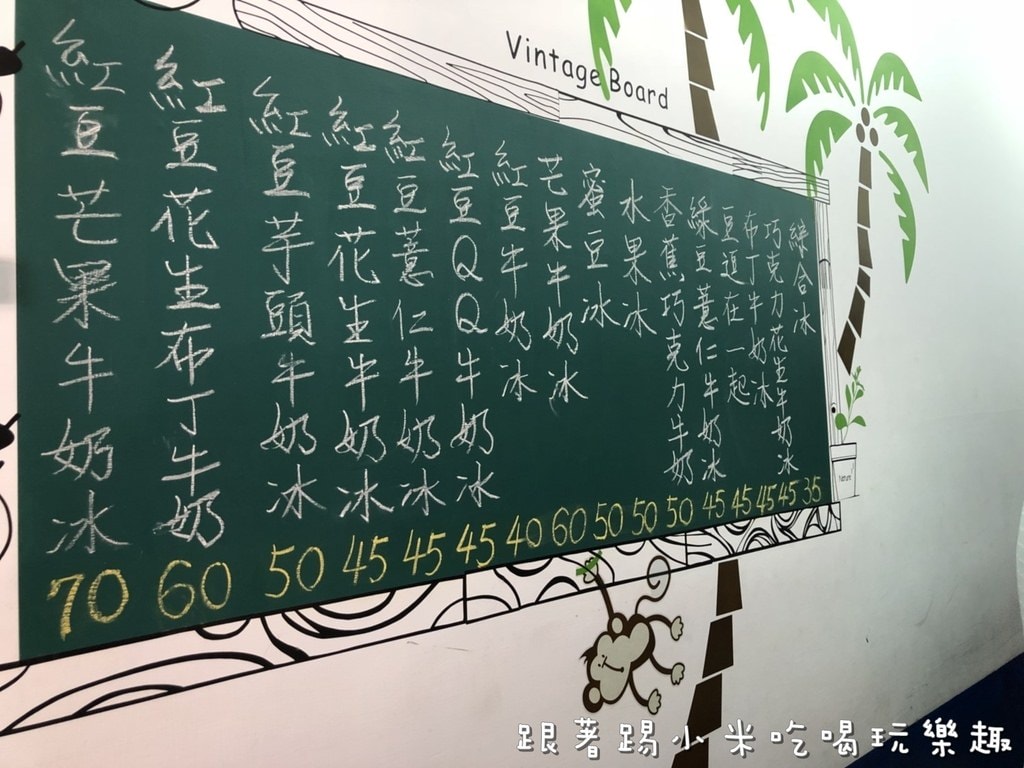 Vintage Board
綜合冰 35
巧克力花生牛奶冰 45
布丁牛奶冰 45
豆逗在一起 45
綠豆薏仁牛奶冰 45
香蕉巧克力牛奶 50
水果冰 50
蜜豆冰 50
芒果牛奶冰 60
紅豆牛奶冰 40
紅豆QQ牛奶冰 45
紅豆薏仁牛奶冰 45
紅豆花生牛奶冰 45
紅豆芋頭牛奶冰 50
紅豆花生布丁牛奶 60
紅豆芒果牛奶冰 70
跟著踢小米吃喝玩樂趣